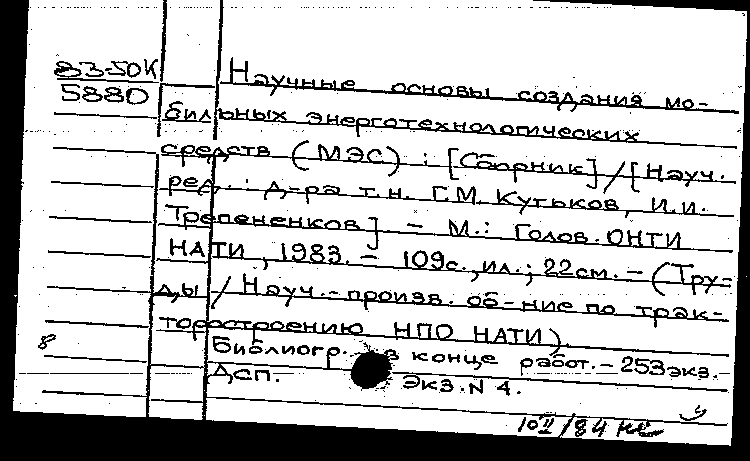 83-50К
5880
Научные основы создания мо-
бильных энерготехнологических
средств (МЭС) : [Сборник] / [Науч.
ред. : д-ра т.н. Г.М. Кутьков, И.И.
Трепененков] - М.: Голов. ОНТИ
НАТИ, 1983. - 109с., ил.; 22см. - (Тру-
ды / Науч.-произв. об-ние по трак-
торостроению НПО НАТИ).
8 Библиогр. в конце работ. - 253экз.
Дсп. Экз. N 4.
10II/84